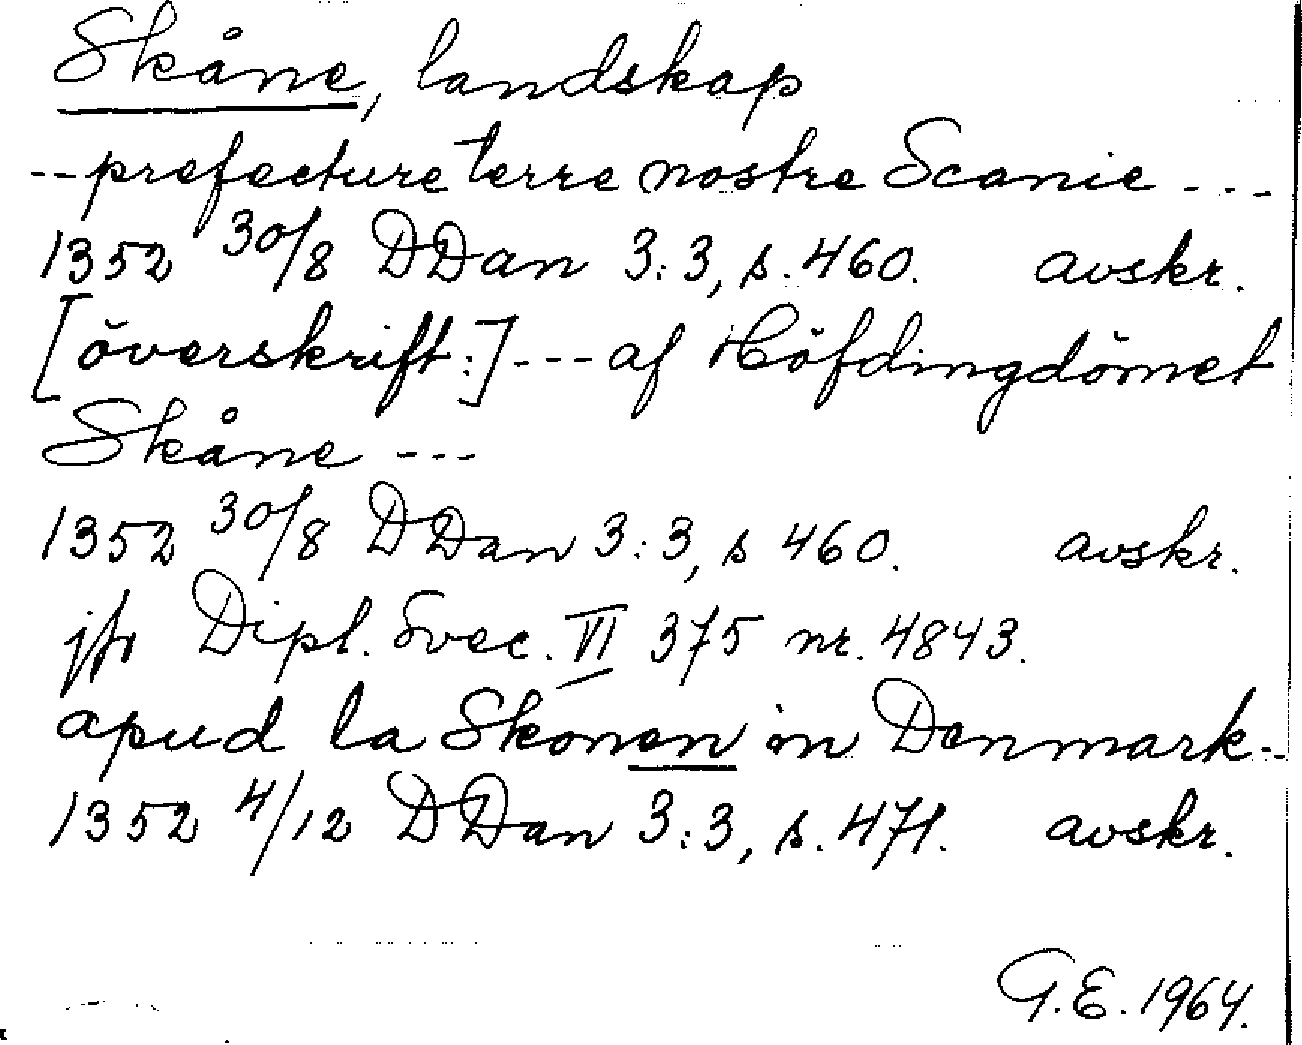 Skåne, landskap
-- prefecture terre nostre Scanie ---
1352 30/8 DDan 3:3, s. 460. avskr.
[överskrift:] --- af Höfdingdömet
Skåne ---
1352 30/8 DDan 3:3, s 460. avskr.
jfr Dipl. Svec. VI 375 nr. 4843.
apud la Skonen in Denmark--
1352 4/12 DDan 3:3, s. 471. avskr.
G.E. 1964.